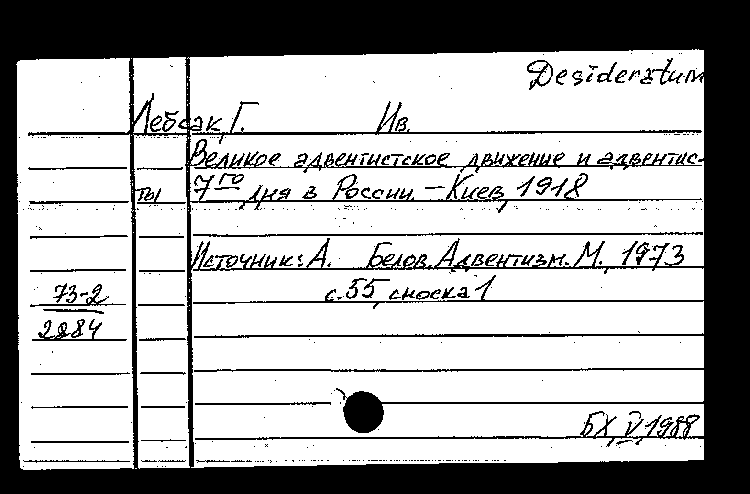 Desideratum
Лебсак, Г. Ив.
Великое адвентистское движение и адвентис-
ты 7го дня в России. — Киев, 1918
Источник: А. Белов. Адвентизм. М., 1973
с. 55, сноска 1
73-2
2884
БХ, V, 1988